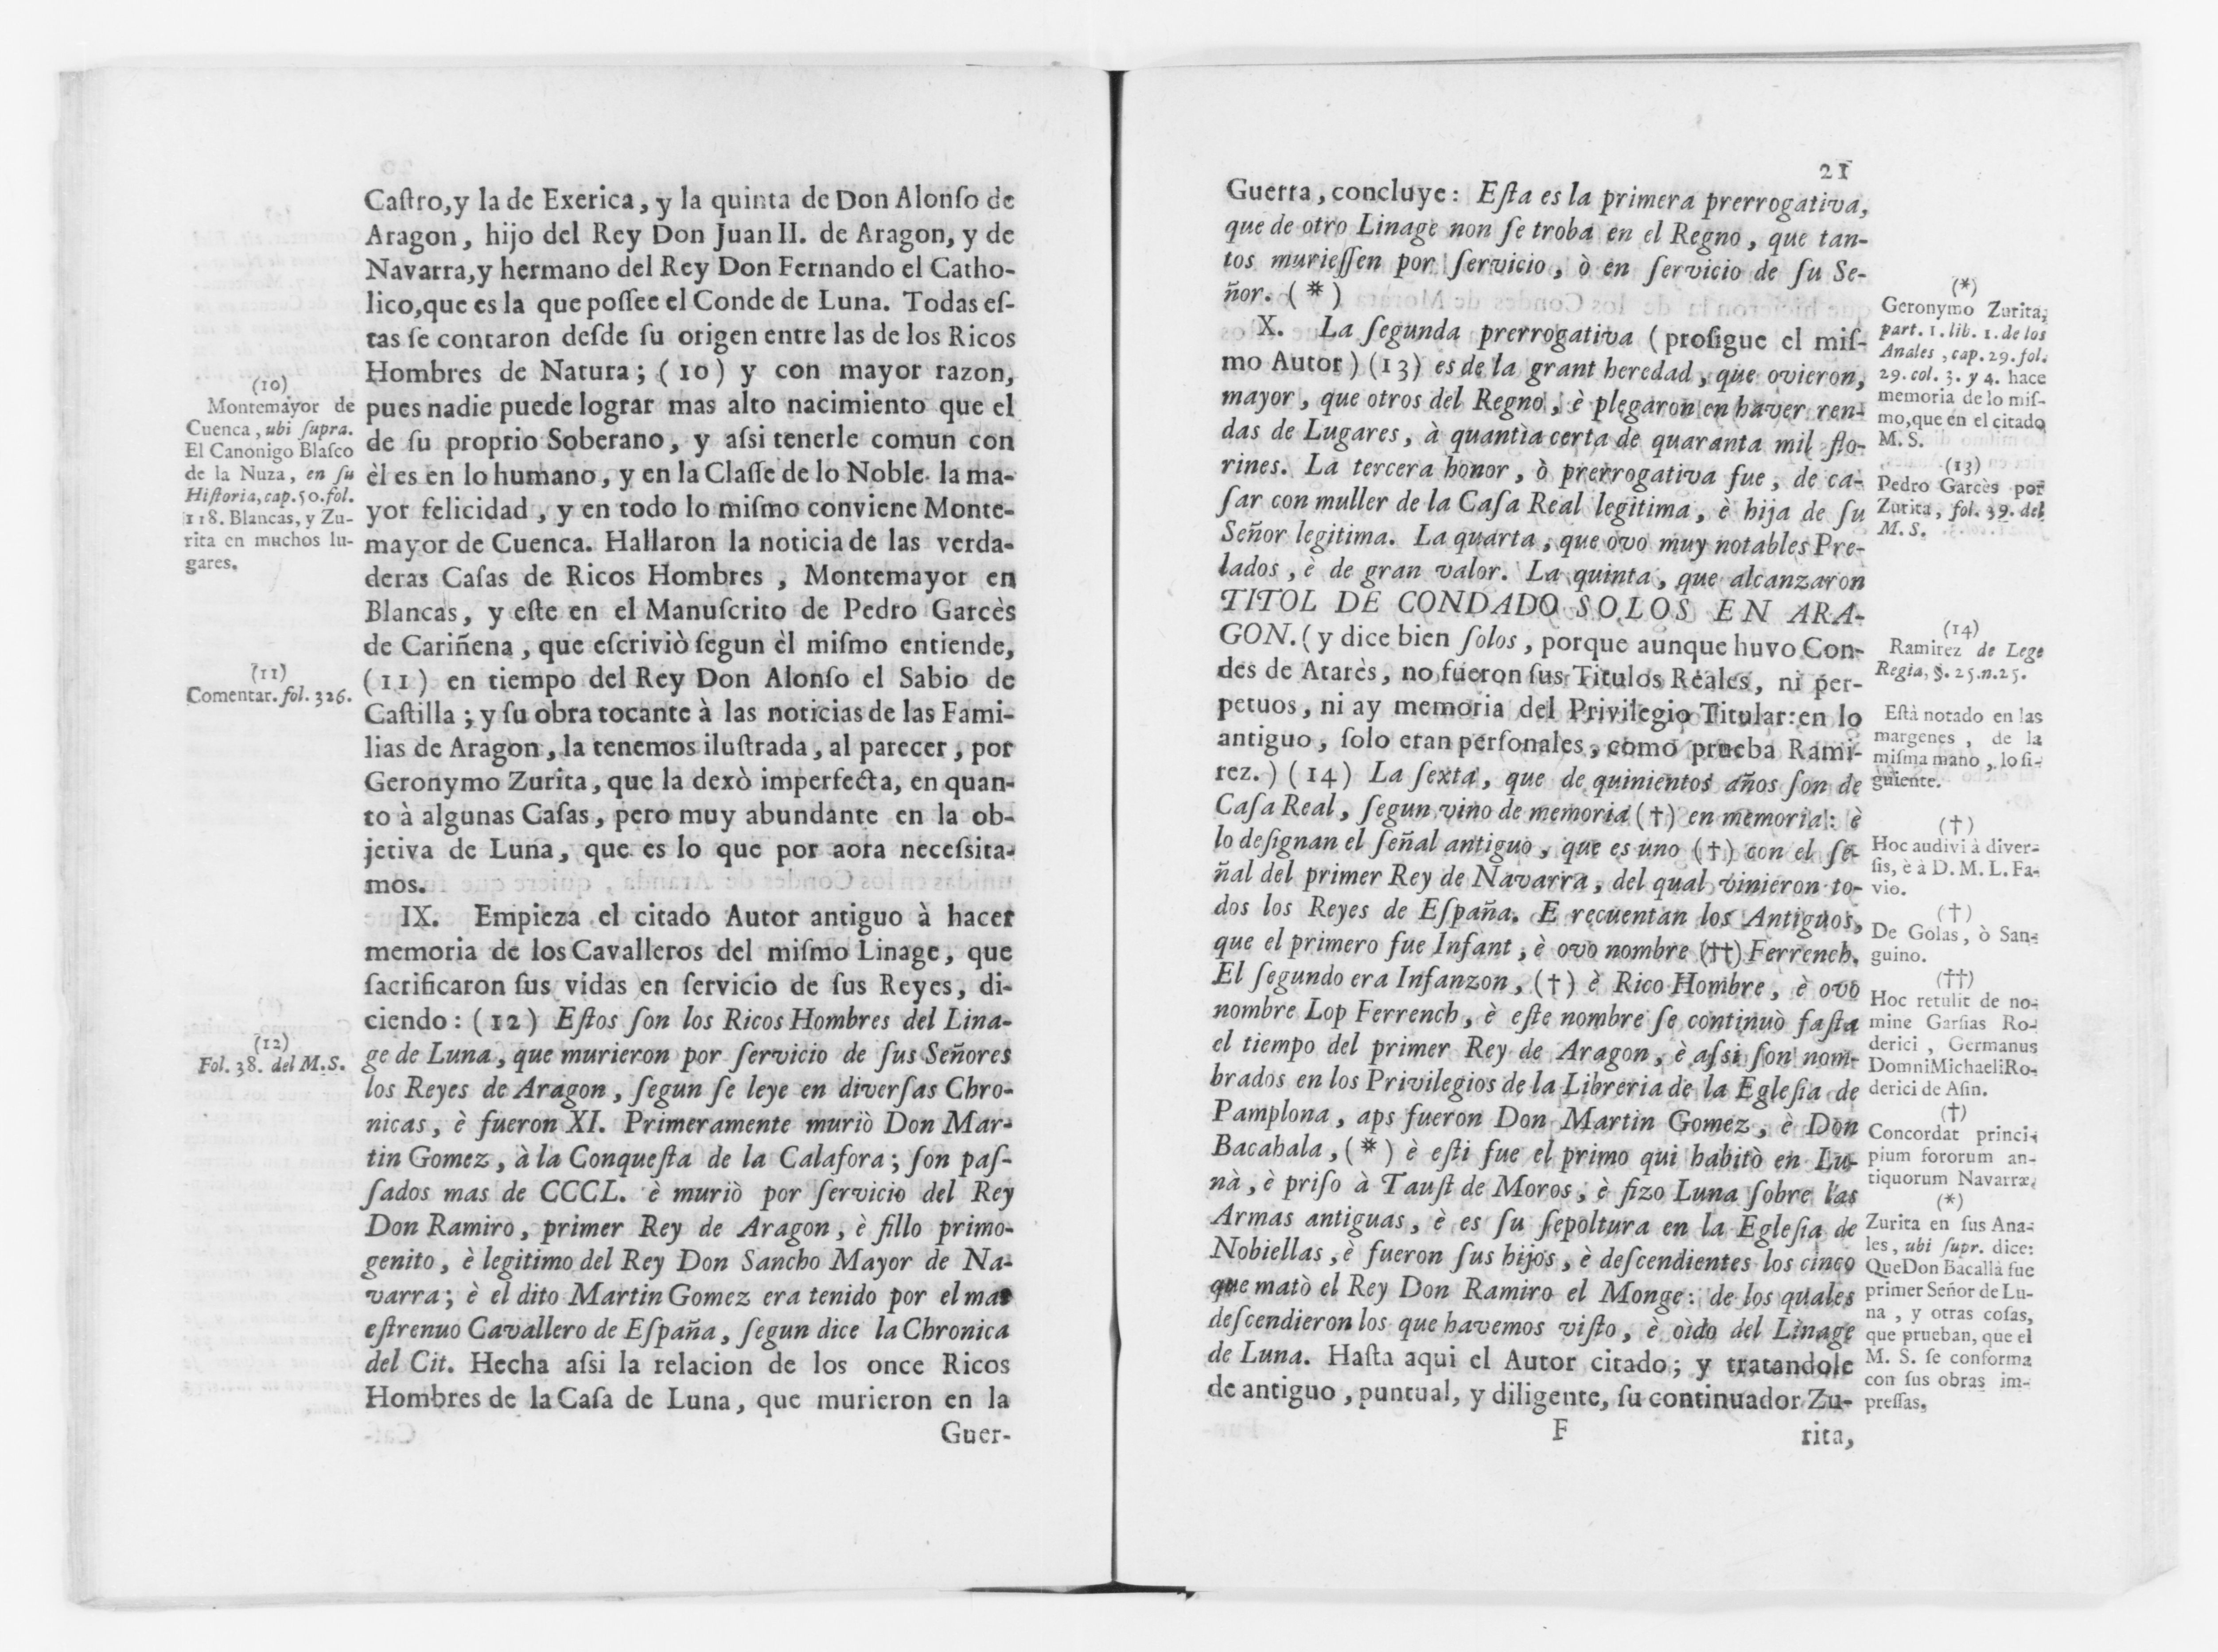 Caſtro,y la de Exerica, y la quinta de Don Alonſo de
Aragon, hijo del Rey Don Juan II. de Aragon, y de
Navarra,y hermano del Rey Don Fernando el Catho-
lico,que es la que poſſee el Conde de Luna. Todas eſ-
tas ſe contaron deſde ſu origen entre las de los Ricos
Hombres de Natura; (10) y con mayor razon,
pues nadie puede lograr mas alto nacimiento que el
de ſu proprio Soberano, y aſsi tenerle comun con
èl es en lo humano, y en la Claſſe de lo Noble la ma-
yor felicidad, y en todo lo miſmo conviene Monte-
mayor de Cuenca. Hallaron la noticia de las verda-
deras Caſas de Ricos Hombres, Montemayor en
Blancas, y eſte en el Manuſcrito de Pedro Garcès
de Cariñena, que eſcriviò ſegun èl miſmo entiende,
(11) en tiempo del Rey Don Alonſo el Sabio de
Caſtilla; y ſu obra tocante à las noticias de las Fami-
lias de Aragon, la tenemos iluſtrada, al parecer, por
Geronymo Zurita, que la dexò imperfecta, en quan-
to à algunas Caſas, pero muy abundante en la ob-
jetiva de Luna, que es lo que por aora neceſsita-
mos.
IX. Empieza el citado Autor antiguo à hacer
memoria de los Cavalleros del miſmo Linage, que
ſacrificaron ſus vidas en ſervicio de ſus Reyes, di-
ciendo: (12) Eſtos ſon los Ricos Hombres del Lina-
ge de Luna, que murieron por ſervicio de ſus Señores
los Reyes de Aragon, ſegun ſe leye en diverſas Chro-
nicas, è fueron XI. Primeramente muriò Don Mar-
tin Gomez, à la Conqueſta de la Calafora; ſon paſ-
ſados mas de CCCL. è muriò por ſervicio del Rey
Don Ramiro, primer Rey de Aragon, è fillo primo-
genito, è legitimo del Rey Don Sancho Mayor de Na-
varra; è el dito Martin Gomez era tenido por el mas
eſtrenuo Cavallero de Eſpaña, ſegun dice la Chronica
del Cit. Hecha aſsi la relacion de los once Ricos
Hombres de la Caſa de Luna, que murieron en la
Guer-
(10)
Montemayor de
Cuenca, ubi ſupra.
El Canonigo Blaſco
de la Nuza, en ſu
Hiſtoria, cap.50.fol.
118. Blancas, y Zu-
rita en muchos lu-
gares.
(11)
Comentar. fol. 326.
(12)
Fol. 38. del M.S.
21
Guerra, concluye: Eſta es la primera prerrogativa,
que de otro Linage non ſe troba en el Regno, que tan-
tos murieſſen por ſervicio, ò en ſervicio de ſu Se-
ñor. (*)
X. La ſegunda prerrogativa (proſigue el miſ-
mo Autor) (13) es de la grant heredad, que ovieron,
mayor, que otros del Regno, è plegaron en haver ren-
das de Lugares, à quantìa certa de quaranta mil flo-
rines. La tercera honor, ò prerrogativa fue, de ca-
ſar con muller de la Caſa Real legitima, è hija de ſu
Señor legitima. La quarta, que ovo muy notables Pre-
lados, è de gran valor. La quinta, que alcanzaron
TITOL DE CONDADO SOLOS EN ARA-
GON. (y dice bien ſolos, porque aunque huvo Con-
des de Atarès, no fueron ſus Titulos Reales, ni per-
petuos, ni ay memoria del Privilegio Titular: en lo
antiguo, ſolo eran perſonales, como prueba Rami-
rez.) (14) La ſexta, que de quinientos años ſon de
Caſa Real, ſegun vino de memoria (†) en memoria: è
lo deſignan el ſeñal antiguo, que es uno (†) con el ſe-
ñal del primer Rey de Navarra, del qual vinieron to-
dos los Reyes de Eſpaña. E recuentan los Antiguos,
que el primero fue Infant, è ovo nombre (††) Ferrench.
El ſegundo era Infanzon, (†) è Rico Hombre, è ovo
nombre Lop Ferrench, è eſte nombre ſe continuò faſta
el tiempo del primer Rey de Aragon, è aſsi ſon nom-
brados en los Privilegios de la Libreria de la Egleſia de
Pamplona, aps fueron Don Martin Gomez, è Don
Bacahala, (*) è eſti fue el primo qui habitò en Lu-
nà, è priſo à Tauſt de Moros, è fizo Luna ſobre las
Armas antiguas, è es ſu ſepoltura en la Egleſia de
Nobiellas, è fueron ſus hijos, è deſcendientes los cinco
que matò el Rey Don Ramiro el Monge: de los quales
deſcendieron los que havemos viſto, è oìdo del Linage
de Luna. Haſta aqui el Autor citado; y tratandole
de antiguo, puntual, y diligente, ſu continuador Zu-
F
rita,
(*)
Geronymo Zurita,
part. 1. lib. 1. de los
Anales, cap. 29. fol.
29. col. 3. y 4. hace
memoria de lo miſ-
mo, que en el citado
M. S.
(13)
Pedro Garcès por
Zurita, fol. 39. del
M. S.
(14)
Ramirez de Lege
Regia, §. 25.n.25.
Eſtà notado en las
margenes, de la
miſma mano, lo ſi-
guiente.
(†)
Hoc audivi à diver-
ſis, è à D. M. L. Fa-
vio.
(†)
De Golas, ò San-
guino.
(††)
Hoc retulit de no-
mine Garſias Ro-
derici, Germanus
Domni Michaeli Ro-
derici de Aſin.
(†)
Concordat princi-
pium fororum an-
tiquorum Navarræ.
(*)
Zurita en ſus Ana-
les, ubi ſupr. dice:
Que Don Bacallà fue
primer Señor de Lu-
na, y otras coſas,
que prueban, que el
M. S. ſe conforma
con ſus obras im-
preſſas.